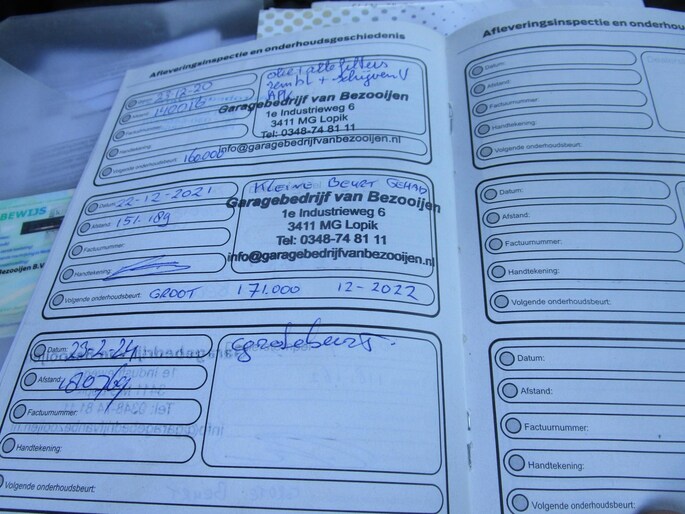 Afleveringsinspectie en onderhoudsgeschiedenis
Datum: 23-12-20
Afstand:
Factuurnummer:
Handtekening:
Volgende onderhoudsbeurt: 160.000
olie + alle filters
APK
Garagebedrijf van Bezooijen
1e Industrieweg 6
3411 MG Lopik
Tel: 0348-74 81 11
info@garagebedrijfvanbezooijen.nl
Datum: 22-12-2021
Afstand: 151.189
Factuurnummer:
Handtekening:
Volgende onderhoudsbeurt: GROOT 171.000 12-2022
KLEINE BEURT GEHAD
Garagebedrijf van Bezooijen
1e Industrieweg 6
3411 MG Lopik
Tel: 0348-74 81 11
info@garagebedrijfvanbezooijen.nl
Datum: 29-2-24
Afstand:
Factuurnummer:
Handtekening:
Volgende onderhoudsbeurt:
grote beurt.
Afleveringsinspectie en onderhou
Datum:
Afstand:
Factuurnummer:
Handtekening:
Volgende onderhoudsbeurt:
Datum:
Afstand:
Factuurnummer:
Handtekening:
Volgende onderhoudsbeurt:
Datum:
Afstand:
Factuurnummer:
Handtekening:
Volgende onderhoudsbeurt:
BEWIJS
Bezooijen B.V